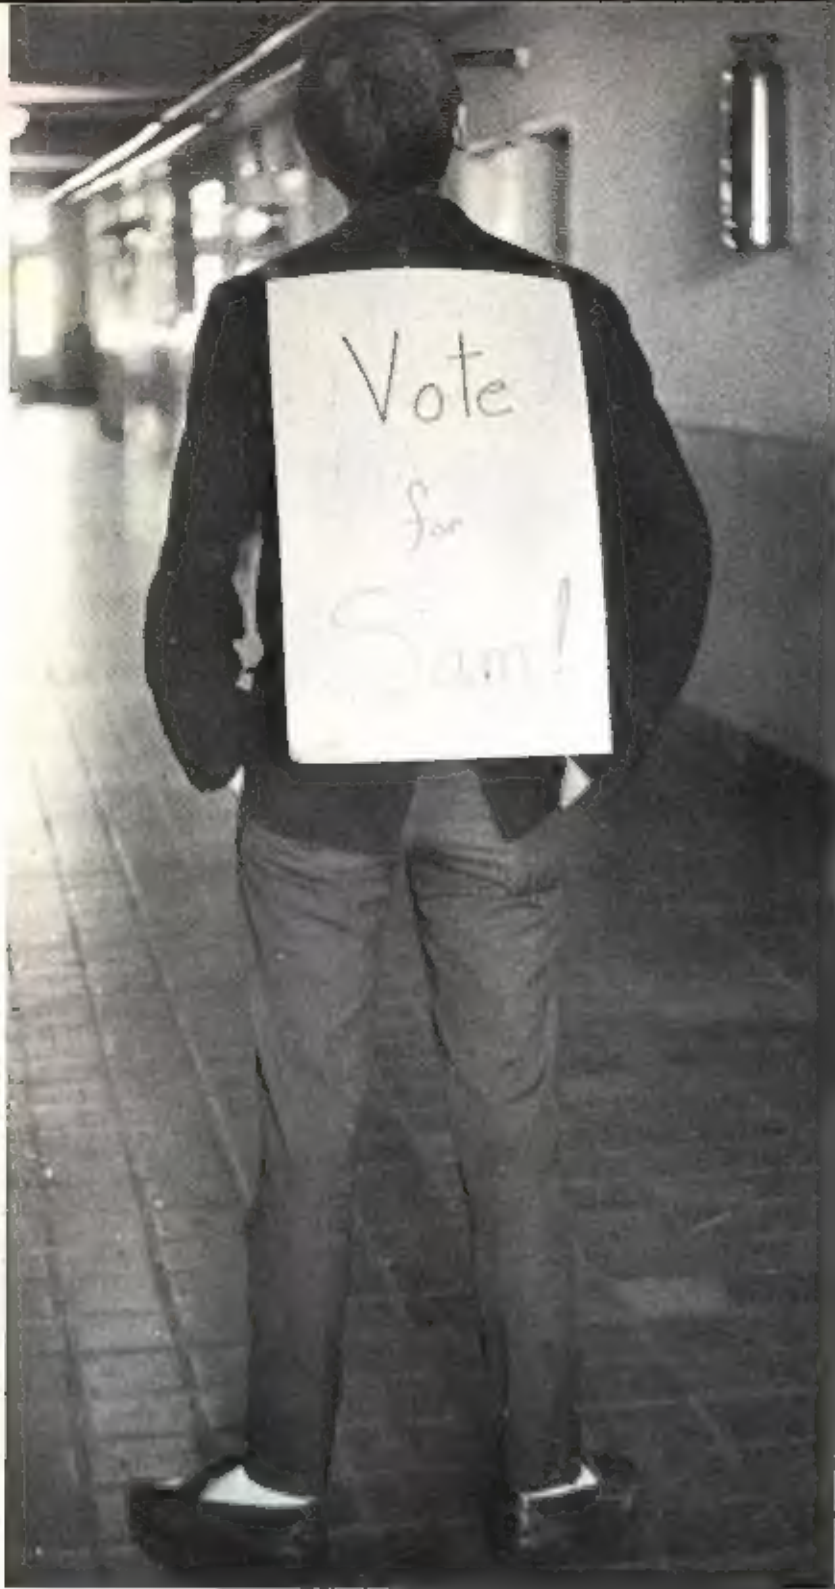 Vote
for
Sam!